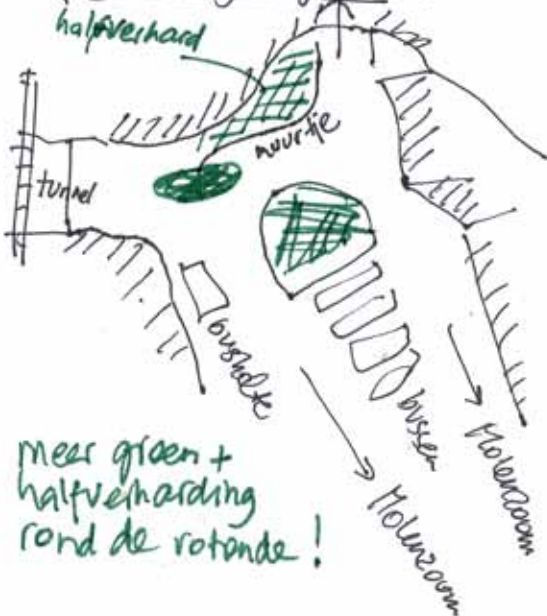 halfverhard
muurtje
tunnel
bushalte
bussen
Molenzoom
Molenzoom
meer groen +
halfverharding
rond de rotonde !